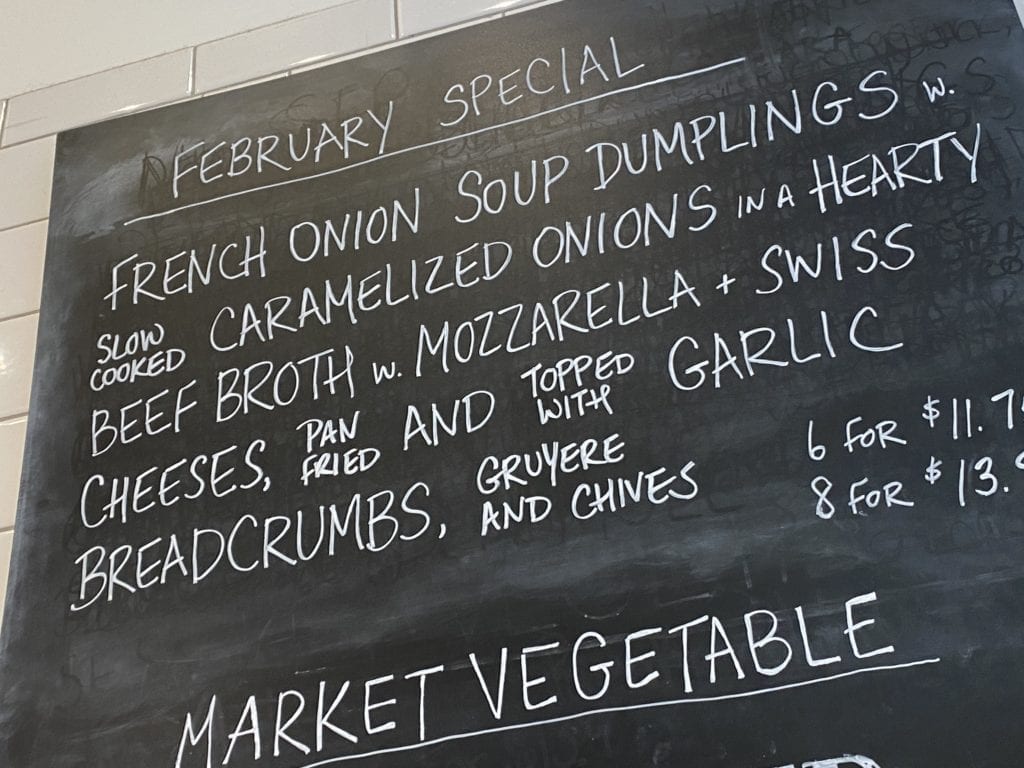 FEBRUARY SPECIAL
FRENCH ONION SOUP DUMPLINGS w.
SLOW COOKED CARAMELIZED ONIONS IN A HEARTY
BEEF BROTH w. MOZZARELLA + SWISS
CHEESES, PAN FRIED AND TOPPED WITH GARLIC
BREADCRUMBS, GRUYERE AND CHIVES
6 FOR $11.7
8 FOR $13.
MARKET VEGETABLE